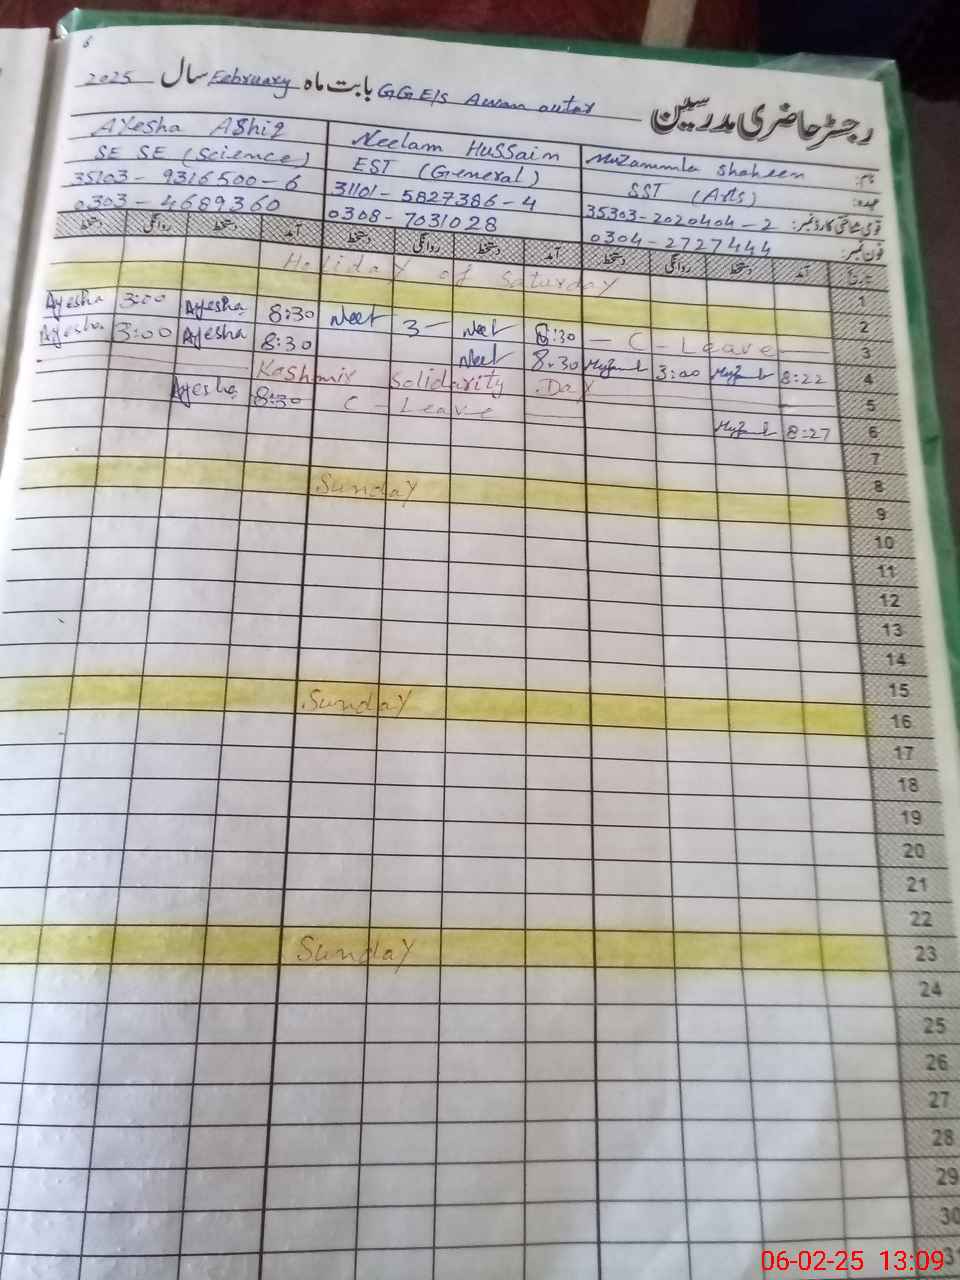 6
رجسٹر حاضری مدرسین GGE/S Awan outar بابت ماہ February سال 2025
نام: Muzammla Shaheen Neelam Hussain Ayesha Ashiq
عہدہ: SST (Arts) EST (General) SE SE (Science)
قومی شناختی کارڈ نمبر: 35303-2020404-2 31101-5827386-4 35103-9316500-6
فون نمبر: 0304-2727444 0308-7031028 0303-4689360
تاریخ آمد دستخط روانگی دستخط آمد دستخط روانگی دستخط آمد دستخط روانگی دستخط
1 Holiday of Saturday
2
3 C-Leave 8:30 Neel 3- Neel 8:30 Ayesha 3:00 Ayesha
4 8:22 3:00 8:30 Neel 8:30 Ayesha 3:00 Ayesha
5 Kashmir Solidarity Day
6 8:27 C-Leave 8:30 Ayesha
7
8
9 Sunday
10
11
12
13
14
15
16 Sunday
17
18
19
20
21
22
23 Sunday
24
25
26
27
28
29
30
31
06-02-25 13:09